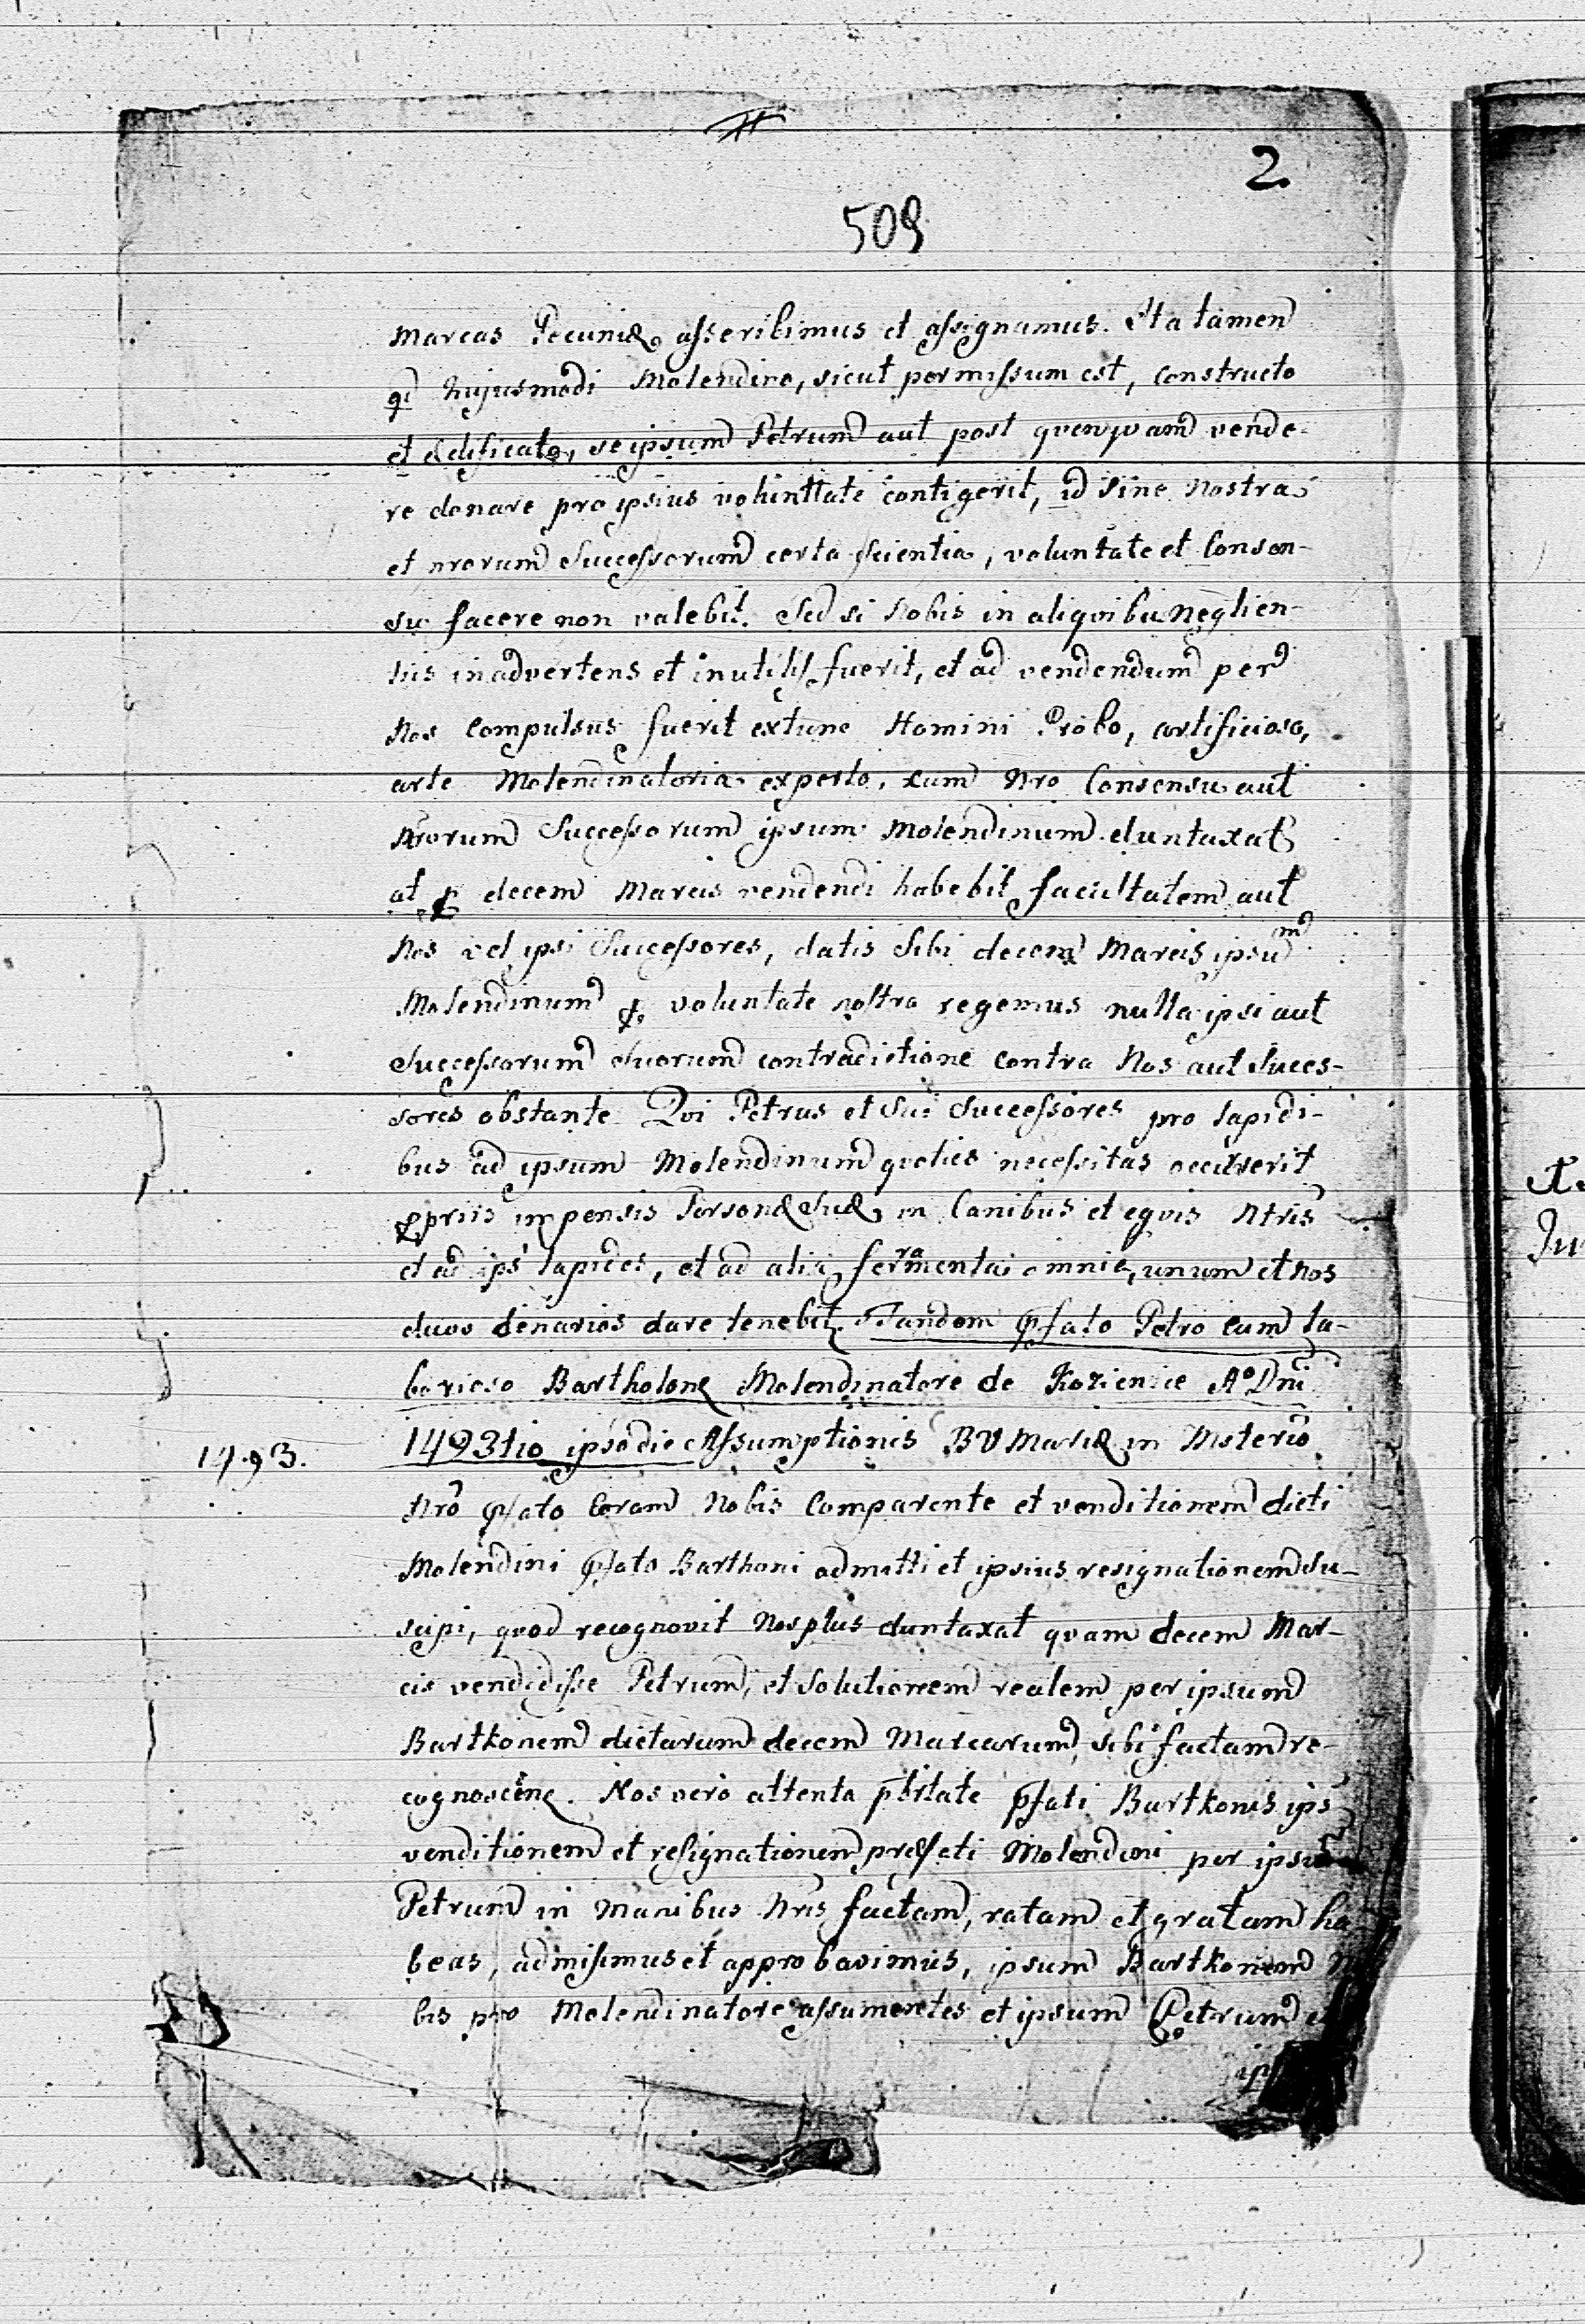 2
509
Marcas Pecuniæ asseribimus et assignamus. Ita tamen
qd hujusmodi Molendino, sicut permissum est, constructo
et ædificato, se ipsum Petrum aut post quenquam vende-
re donare pro ipsius voluntate contigerit, id sine nostra
et nrorum Successorum certa scientia, voluntate et Consen-
su facere non valebit. Sed si Nobis in aliquibu neglien-
tiis inadvertens et inutilis fuerit, et ad vendendum per
Nos Compulsus fuerit extunc Homini Probo, artificioso,
arte Molendinatoria experto, cum Nro Consensu aut
Nrorum Successorum ipsum Molendinum duntaxat
at decem Marcis vendendi habebit facultatem aut
Nos vel ipsi Successores, datis Sibi decem Marcis ipsum
Molendinum voluntate nostra regemus nulla ipsi aut
Successorum Suorum contradictione contra Nos aut Succes-
sores obstante. Qui Petrus et Sui Successores pro lapidi-
bus ad ipsum Molendinum quoties necessitas occurerit
ppriis impensis Personæ Suæ in Canibus et equis Ntris
et ad ips lapides, et ad alia ferramenta omnia, unum et nos
duos denarios dare tenebit. Tandem pfato Petro cum la-
borioso Bartholone Molendinatore de Kozienice Ao Dni
1493.
1493tio ipso die Assumptionis BV Mariæ in Msterio
Nro pfato Coram Nobis Comparente et venditionem dicti
Molendini pfato Barthoni admitti et ipsius resignationem Su-
scipi, quod recognovit Nos plus duntaxat quam decem Mar-
cis vendidisse Petrum, et Solutionem realem per ipsum
Bartkonem dictarum decem Marcarum sibi factam re-
cognoscine. Nos vero attenta pbitate pfati Bartkonis ips
venditionem et resignationem præfati Molendini per ipsum
Petrum in Manibus Nris factam, ratam et gratam ha
beas, admisimus et approbavimus, ipsum Bartkonem
bis pro Molendinatore assumentes et ipsum Petrum